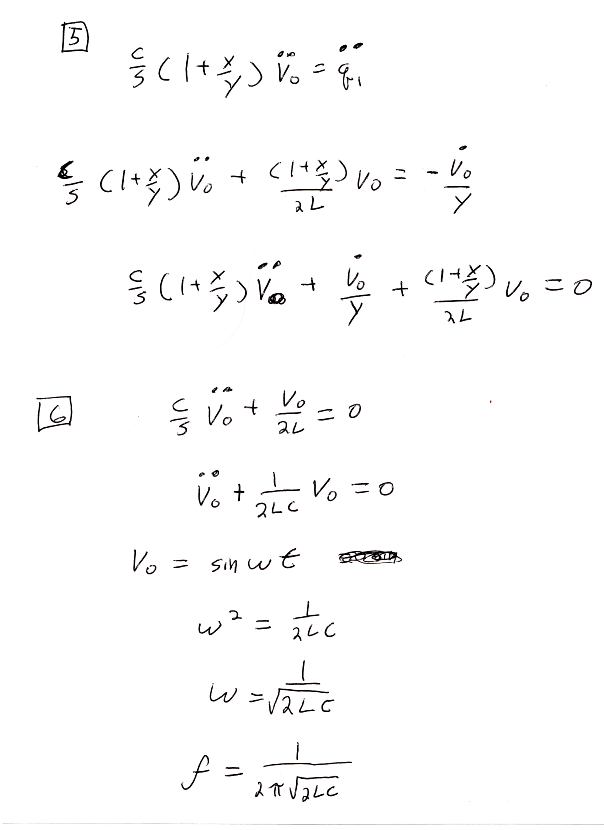 5
c/5 (1 + x/y) V̈₀ = q̈₁
c/5 (1 + x/y) V̈₀ + (1 + x/y)/2L V₀ = - V̇₀/y
c/5 (1 + x/y) V̈₀ + V̇₀/y + (1 + x/y)/2L V₀ = 0
6
c/5 V̈₀ + V₀/2L = 0
V̈₀ + 1/2LC V₀ = 0
V₀ = sin ω t
ω² = 1/2LC
ω = 1/√2LC
f = 1/2π√2LC